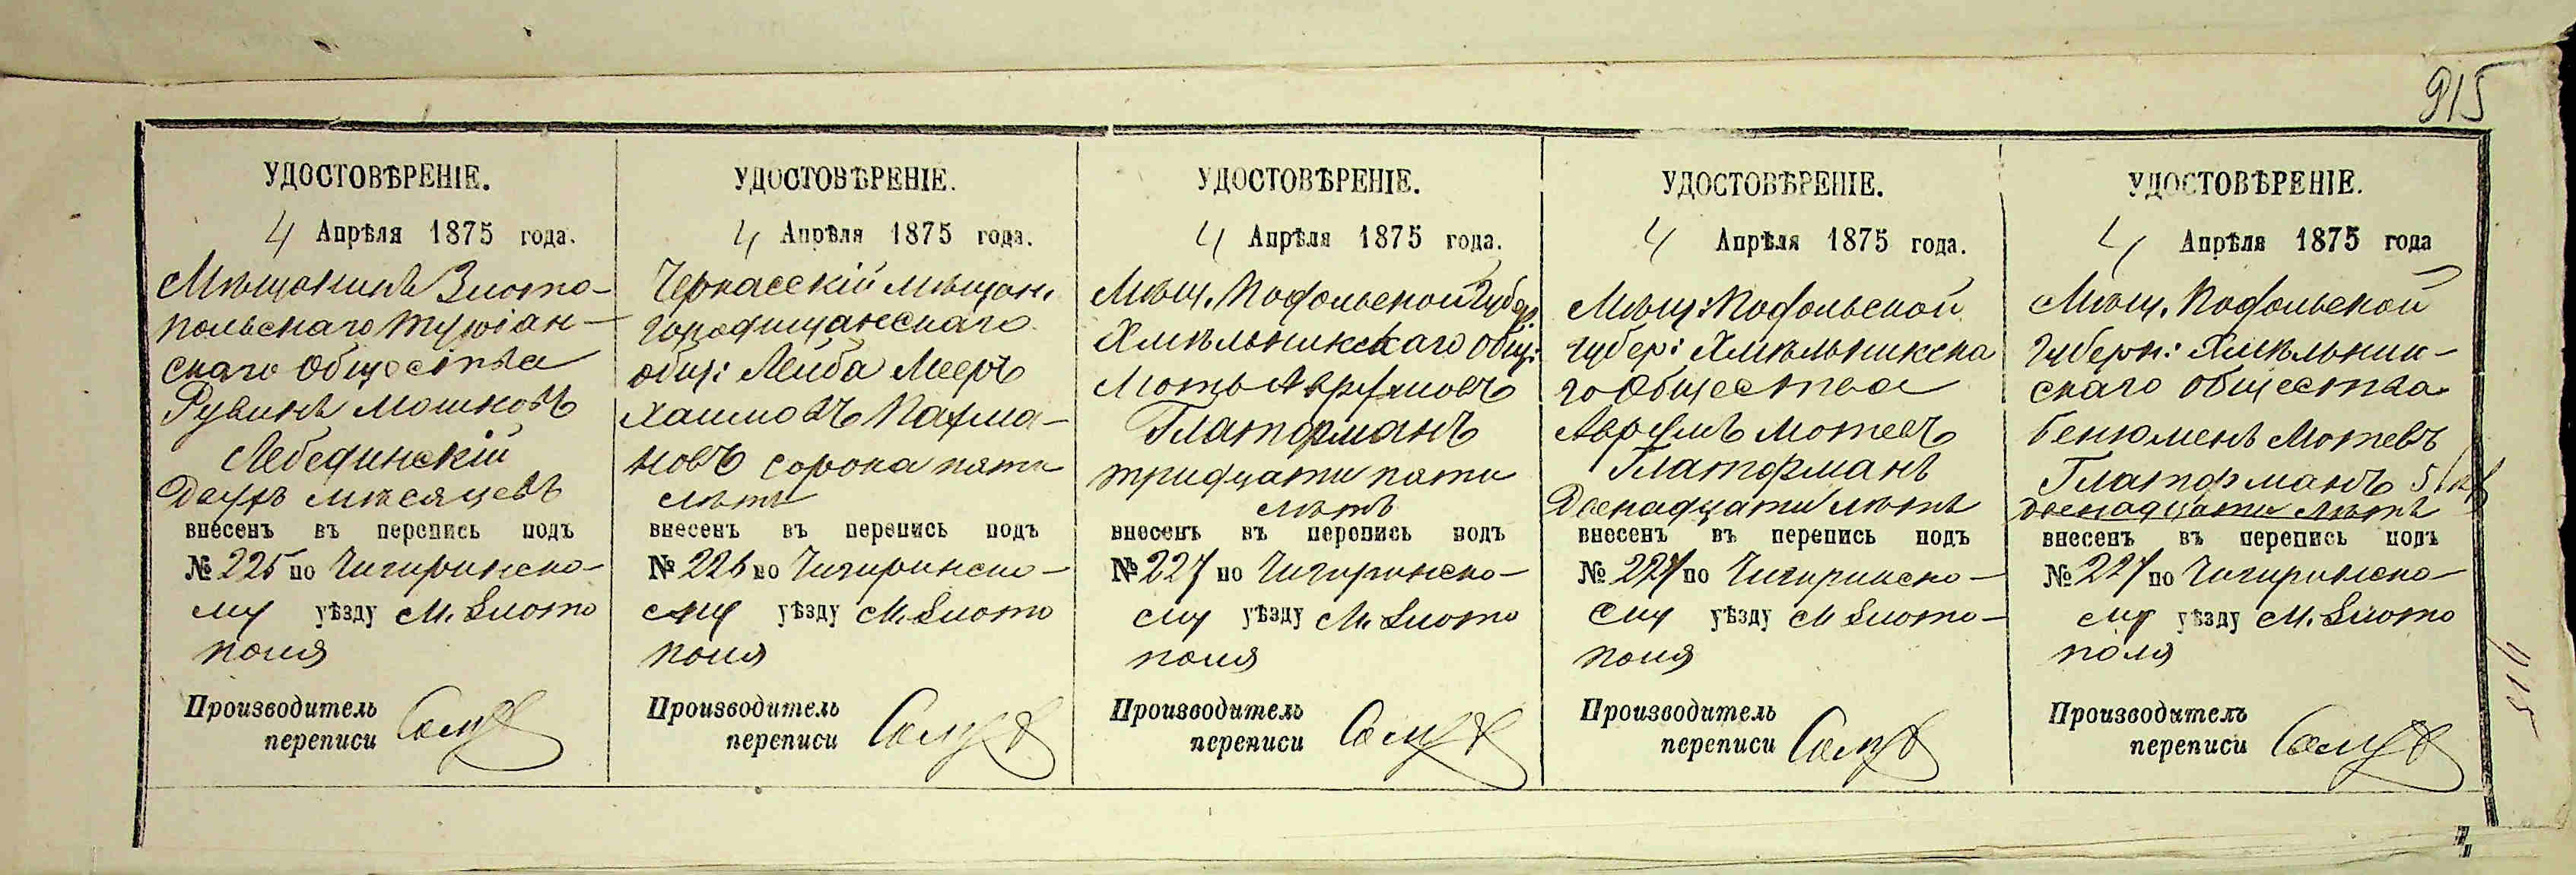 915
УДОСТОВѢРЕНІЕ.
4 Апрѣля 1875 года.
Мѣщанинъ Злото-
польскаго Туріан-
скаго Общества
Рувинъ Мошковъ
Лебединскій
Двухъ мѣсяцевъ
внесенъ въ перепись подъ
№ 225 по Чигиринско-
му уѣзду М. Злото
поля
Производитель
переписи
УДОСТОВѢРЕНІЕ.
4 Апрѣля 1875 года.
Черкасскій мѣщан.
Городищанскаго
общ: Лейба Мееръ
Хаимовъ Нахма-
новъ сорока пяти
лѣтъ
внесенъ въ перепись подъ
№ 226 по Чигиринско-
му уѣзду М. Злото
поля
Производитель
переписи
УДОСТОВѢРЕНІЕ.
4 Апрѣля 1875 года.
Мѣщ. Подольской Губер.
Хмѣльникскаго общ:
Моть Аврумовъ
Гляторманъ
тридцати пяти
лѣтъ
внесенъ въ перепись подъ
№ 227 по Чигиринско-
му уѣзду М. Злото
поля
Производитель
переписи
УДОСТОВѢРЕНІЕ.
4 Апрѣля 1875 года.
Мѣщ: Подольской
губер: Хмѣльникска
го Общества
Аврумъ Мотевъ
Гляторманъ
Двенадцати лѣтъ
внесенъ въ перепись подъ
№ 227 по Чигиринско-
му уѣзду М Злото-
поля
Производитель
переписи
УДОСТОВѢРЕНІЕ.
4 Апрѣля 1875 года
Мѣщ. Подольской
Губерн: Хмѣльник-
скаго общества
Бенюменъ Мотевъ
Гляторманъ 5
двенадцати лѣтъ
внесенъ въ перепись подъ
№ 227 по Чигиринско-
му уѣзду М. Злото
поля
Производитель
переписи
915